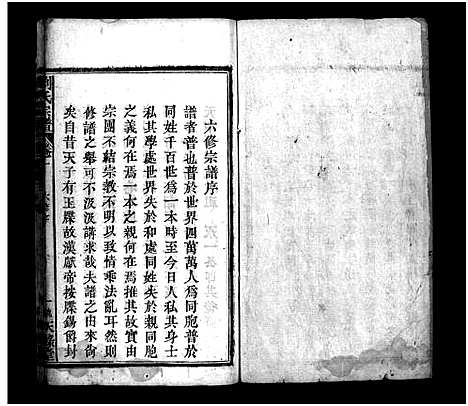 六修宗譜序
譜者普也普於世界四萬萬人爲同胞普於
同姓千百世爲一本時至今日人私其身士
私其學處世界失於和處同姓失於親同胞
之義何在焉一本之親何在焉推其故實由
宗團不結宗敎不明以致情乖法亂耳然則
修譜之舉可不汲汲講求哉夫譜之由來尙
矣自昔天子有玉牒故漢獻帝按牒錫爵封